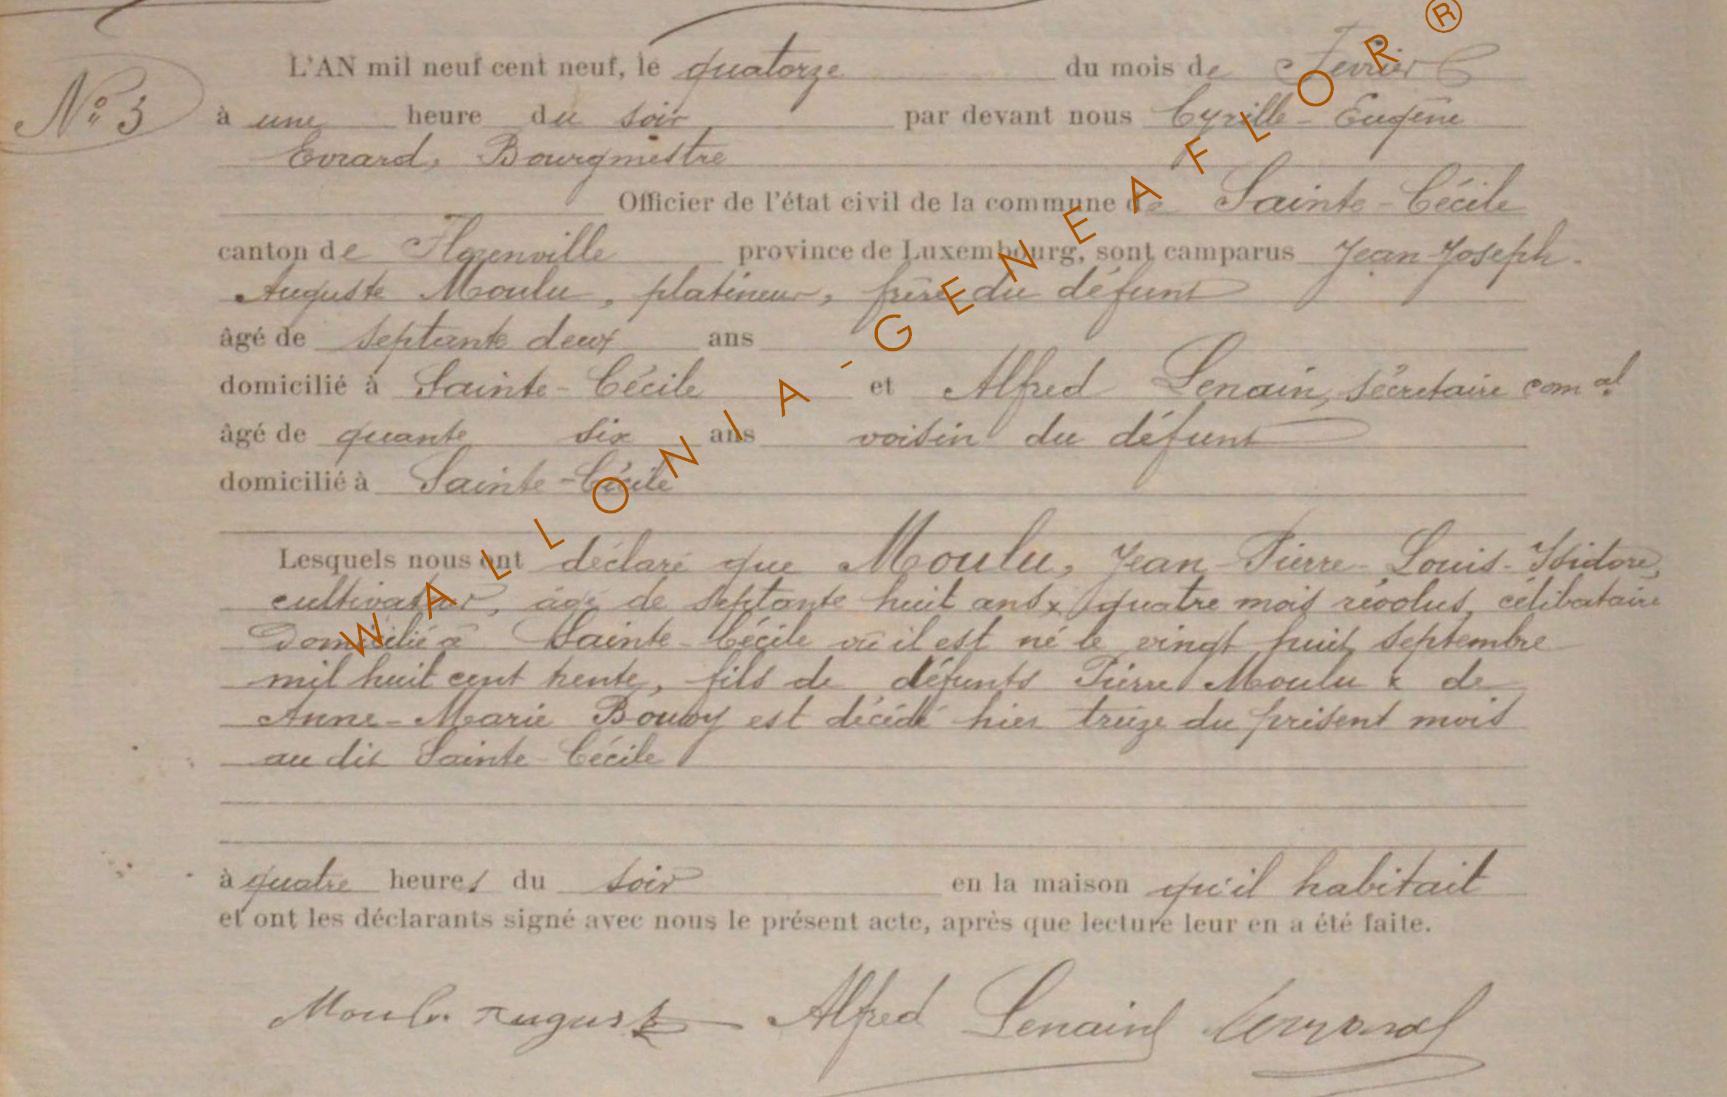 L'AN mil neuf cent neuf, le quatorze du mois de Fevrier
N° 3 à une heure du soir par devant nous Cyrille-Eugène
Evrard, Bourgmestre
Officier de l'état civil de la commune de Sainte-Cécile
canton de Florenville province de Luxembourg, sont camparus Jean-Joseph-
Auguste Moulu, platineur, frère du défunt
âgé de septante deux ans
domicilié à Sainte-Cécile et Alfred Lenain, sécretaire comal
âgé de quante six ans voisin du défunt
domicilié à Sainte-Cécile
Lesquels nous ont déclaré que Moulu, Jean-Pierre-Louis-Isidore,
cultivateur, âgé de septante huit ans, quatre mois révolus, célibataire
Domicilié à Sainte-Cécile où il est né le vingt huit septembre
mil huit cent trente, fils de défunts Pierre Moulu & de
Anne-Marie Bouvy est décédé hier treize du présent mois
au dit Sainte Cécile
à quatre heures du soir en la maison qu'il habitait
et ont les déclarants signé avec nous le présent acte, après que lecture leur en a été faite.
Moulu Auguste Alfred Lenain
WALLONIA-GENEAFLOR®